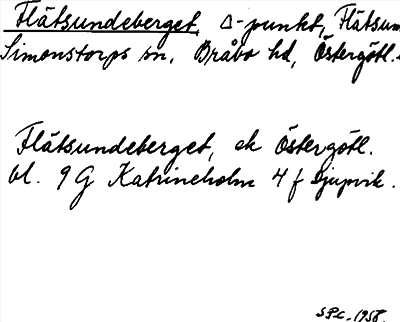 Flätsundeberget, Δ-punkt, Flätsun
Simonstorps sn, Bråbo hd, Östergötl.
Flätsundeberget, ek Östergötl.
bl. 9 G Katrineholm 4 f Djupvik.
SPC. 1958.